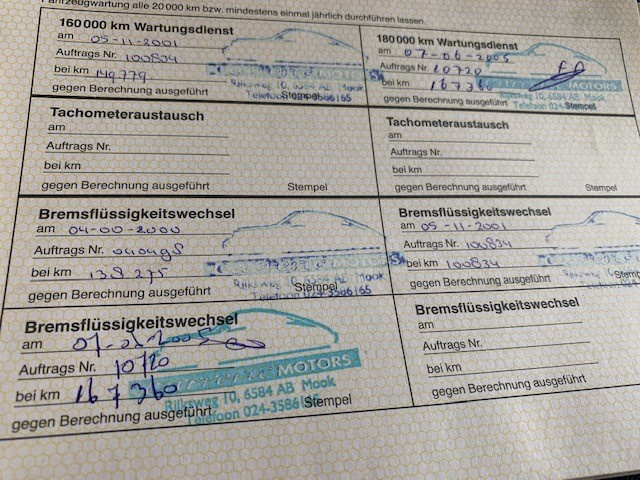 Fahrzeugwartung alle 20 000 km bzw. mindestens einmal jährlich durchführen lassen.
160 000 km Wartungsdienst
am 05-11-2001
Auftrags Nr. 100834
bei km 149.779
gegen Berechnung ausgeführt
Rijksweg 10, 6584 AB Mook
Telefoon 024-3586165
Stempel
180 000 km Wartungsdienst
am 07-06-2005
Auftrags Nr. 10720
bei km 167360
gegen Berechnung ausgeführt
MOTORS
Rijksweg 10, 6584 AB Mook
Telefoon 024-
Stempel
Tachometeraustausch
am
Auftrags Nr.
bei km
gegen Berechnung ausgeführt
Stempel
Tachometeraustausch
am
Auftrags Nr.
bei km
gegen Berechnung ausgeführt
Stempel
Bremsflüssigkeitswechsel
am 04-00-2000
Auftrags Nr.
bei km 138275
gegen Berechnung ausgeführt
Rijksweg 10, 6584 AB Mook
Telefoon 024-3586165
Stempel
Bremsflüssigkeitswechsel
am 05-11-2001
Auftrags Nr. 100834
bei km 100834
gegen Berechnung ausgeführt
Rijksweg 10, 6584
Telefoon
Bremsflüssigkeitswechsel
am
Auftrags Nr. 10720
bei km 167360
gegen Berechnung ausgeführt
MOTORS
Rijksweg 10, 6584 AB Mook
Telefoon 024-3586
Stempel
Bremsflüssigkeitswechsel
am
Auftrags Nr.
bei km
gegen Berechnung ausgeführt